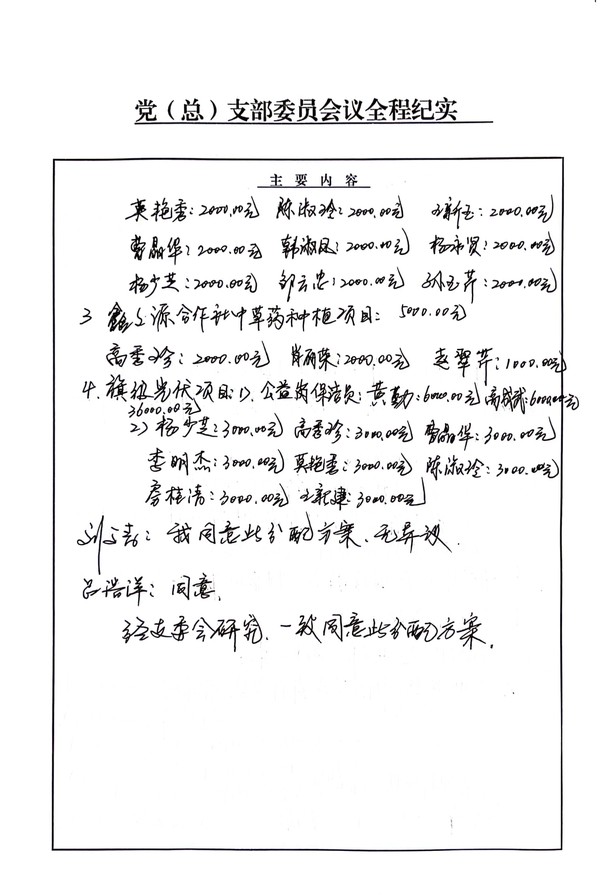 党（总）支部委员会议全程纪实
主要内容
莫艳香：2000.00元 陈淑玲：2000.00元 王新玉：2000.00元
曹晶华：2000.00元 韩淑凤：2000.00元 杨永贤：2000.00元
杨少芝：2000.00元 邹云忠：2000.00元 孙玉芹：2000.00元
3 源合作社中草药种植项目： 5000.00元
高秀珍：2000.00元 肖丽荣：2000.00元 赵翠芹：1000.00元
4. 旗级光伏项目：1）、公益岗保洁员：黄勤：6000.00元 高 ：6000.00元
36000.00元
2）杨少芝：3000.00元 高秀珍：3000.00元 曹晶华：3000.00元
李明杰：3000.00元 莫艳香：3000.00元 陈淑玲：3000.00元
房桂清：3000.00元 王 ：3000.00元
刘 ：我同意此分配方案、无异议.
吕浩洋：同意.
经支委会研究、一致同意此分配方案.